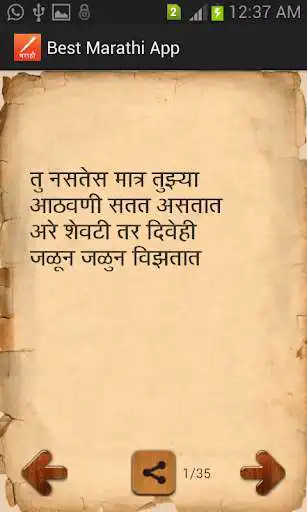 2 12:37 AM
मराठी Best Marathi App
तु नसतेस मात्र तुझ्या
आठवणी सतत असतात
अरे शेवटी तर दिवेही
जळून जळुन विझतात
1/35